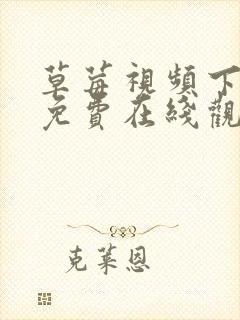 草莓視頻下
免費在綫觀
克萊恩